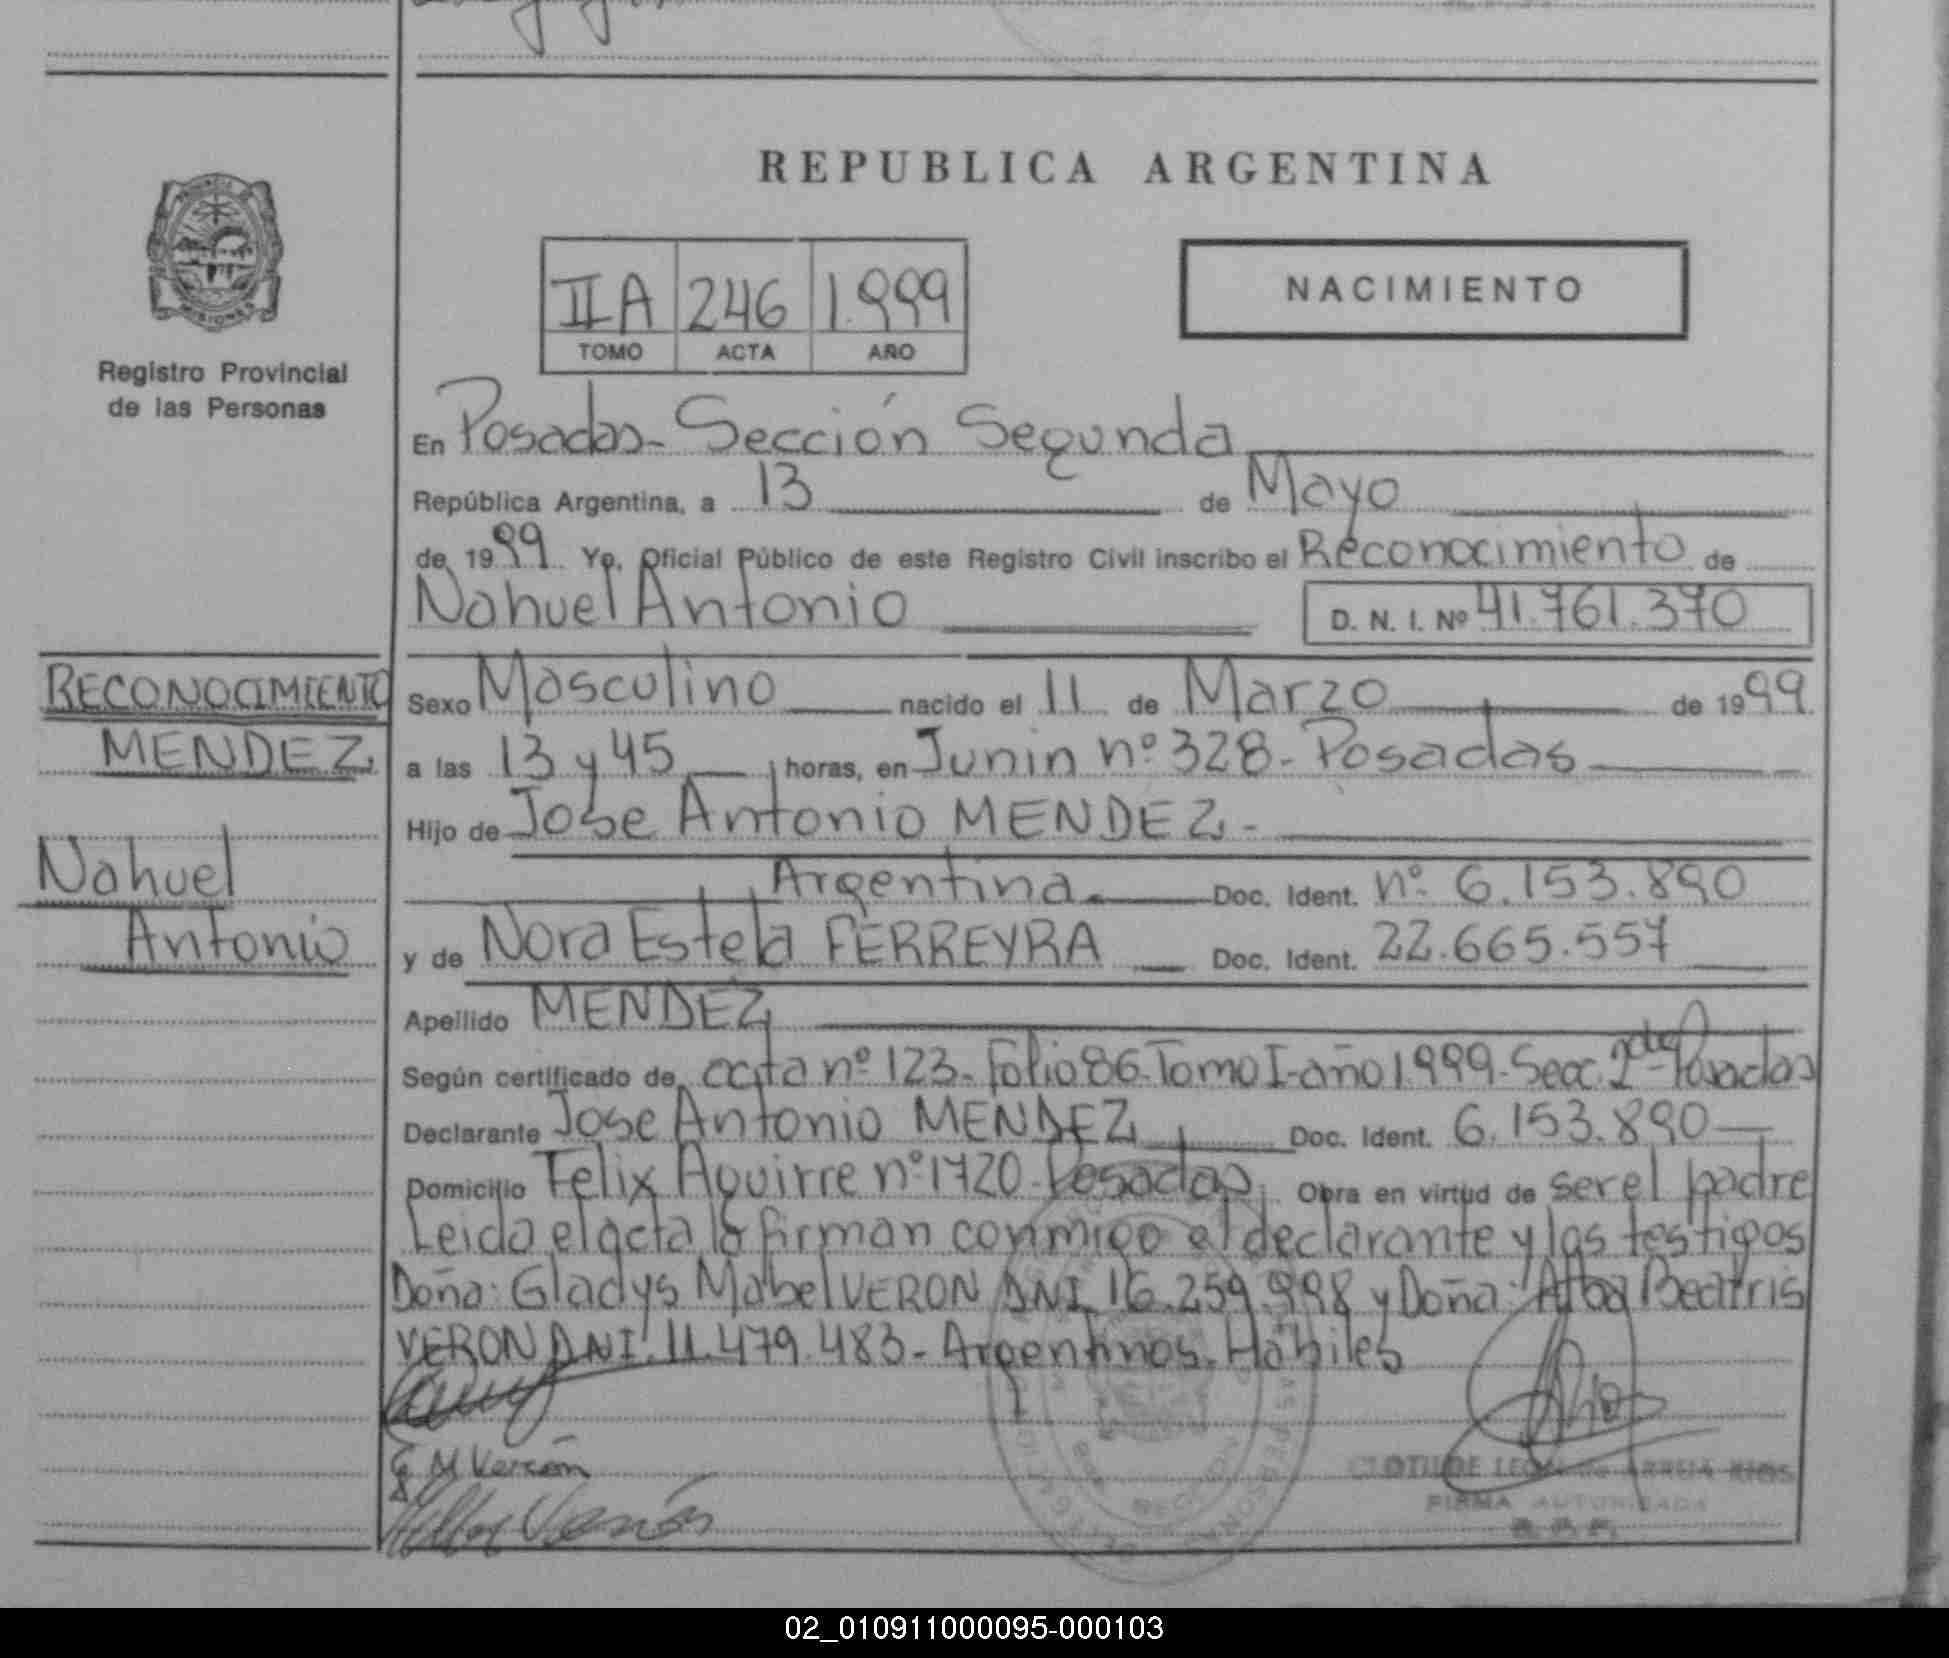 REPUBLICA ARGENTINA
IIA 246 1.999
TOMO ACTA AÑO
NACIMIENTO
PROVINCIA
MISIONES
Registro Provincial
de las Personas
En Posadas - Sección Segunda
República Argentina, a 13 de Mayo
de 1999 Yo, Oficial Público de este Registro Civil inscribo el Reconocimiento de
Nahuel Antonio D. N. I. Nº 41.761.370
RECONOCIMIENTO
MENDEZ
Nahuel
Antonio
Sexo Masculino nacido el 11 de Marzo de 1999
a las 13 y 45 horas, en Junin nº 328 - Posadas
Hijo de Jose Antonio MENDEZ -
Argentina Doc. Ident. nº 6.153.890
y de Nora Estela FERREYRA Doc. Ident. 22.665.557
Apellido MENDEZ
Según certificado de acta nº 123 - Folio 86 - Tomo I - año 1.999 - Secc. 2da - Posadas
Declarante Jose Antonio MENDEZ Doc. Ident. 6.153.890
Domicilio Felix Aguirre nº 1720 - Posadas Obra en virtud de ser el padre
Leida el acta la firman conmigo el declarante y los testigos
Doña: Gladys Mabel VERON DNI. 16.259.998 y Doña: Alba Beatris
VERON DNI. 11.479.483 - Argentinos - Habiles
G M Verón
Verón
CLOTILDE RIOS
FIRMA AUTORIZADA
02_010911000095-000103